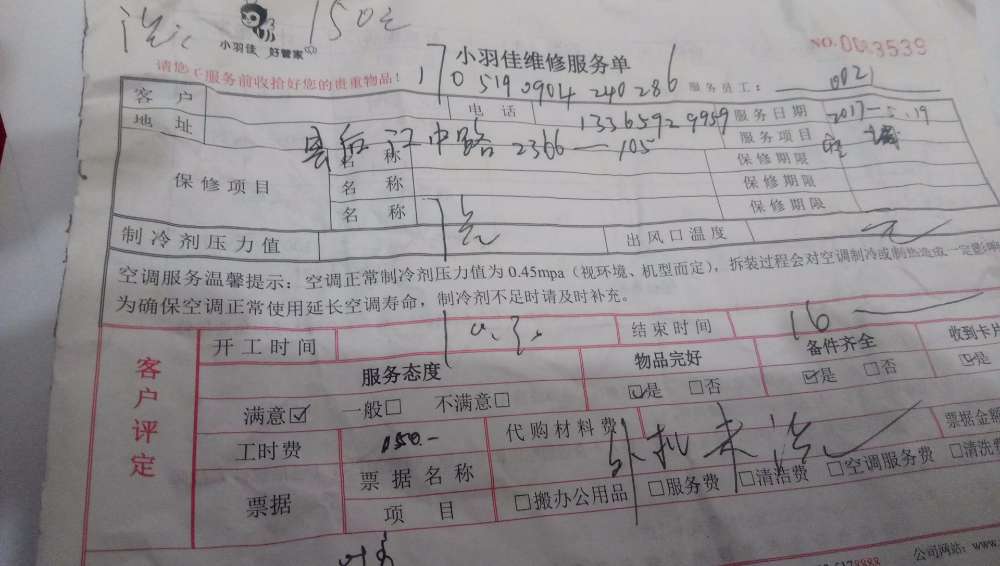 150元
小羽佳 好管家
小羽佳维修服务单
NO.0003539
请您在服务前收拾好您的贵重物品!
170519 0904 240286
服务员工: 0021
客户
电话 13365929959
服务日期 2017-5.19
地址 2366-105
服务项目
保修项目
名称
保修期限
名称
保修期限
名称
保修期限
制冷剂压力值
出风口温度
空调服务温馨提示:空调正常制冷剂压力值为 0.45mpa(视环境、机型而定),拆装过程会对空调制冷或制热造成一定影响
为确保空调正常使用延长空调寿命,制冷剂不足时请及时补充。
客户评定
开工时间
结束时间 16
服务态度
物品完好
备件齐全
收到卡片
满意☑ 一般□ 不满意□
☑是 □否
☑是 □否
☑是
工时费 150-
代购材料费
外机未洗
票据金额
票据
票据名称
项目
□搬办公用品 □服务费 □清洁费 □空调服务费 □清洗费
公司网站:www.
8888